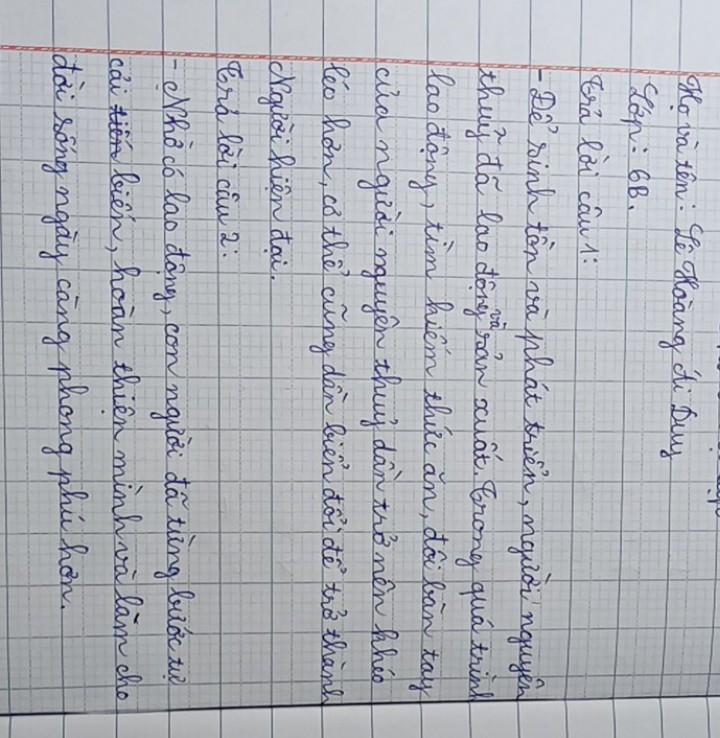 Họ và tên: Lê Hoàng Ái Duy
Lớp: 6B.
Trả lời câu 1:
- Để sinh tồn và phát triển, người nguyên
thuỷ đã lao động và sản xuất. Trong quá trình
lao động, tìm kiếm thức ăn, đôi bàn tay
của người nguyên thuỷ dần trở nên khéo
léo hơn, cơ thể cũng dần biến đổi để trở thành
Người hiện đại.
Trả lời câu 2:
- Nhờ có lao động, con người đã từng bước tự
cải biến, hoàn thiện mình và làm cho
đời sống ngày càng phong phú hơn.